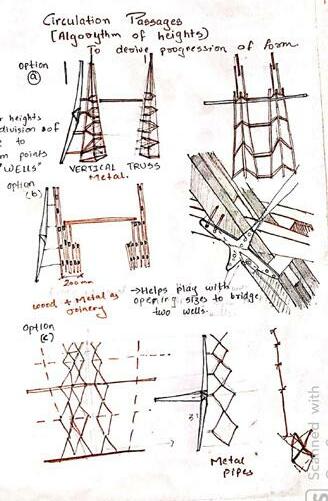 Circulation Passages
[Algorythm of heights)
To derive progression of form
option
(a)
r heights
division of
to
m points
"WELLS"
VERTICAL TRUSS
Metal.
option
(b)
200mm
wood + Metal as
joinery
→Helps play with
opening sizes to bridge
two wells.
Option
(c)
Metal
pipes
Scanned with